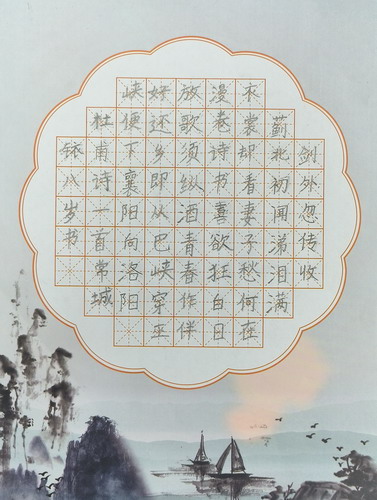 剑外忽传收
蓟北初闻涕泪满
衣裳却看妻子愁何在
漫卷诗书喜欲狂白日
放歌须纵酒青春作伴
好还乡即从巴峡穿巫
峡便下襄阳向洛阳
杜甫诗一首常城
八岁书